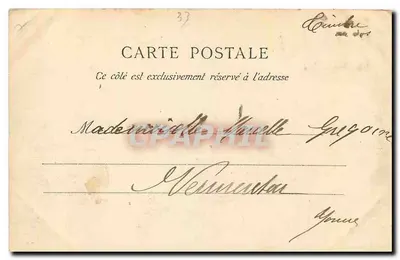 33
Timbre
au dos
CARTE POSTALE
Ce côté est exclusivement réservé à l'adresse
Mademoiselle Grégoire
Yonne